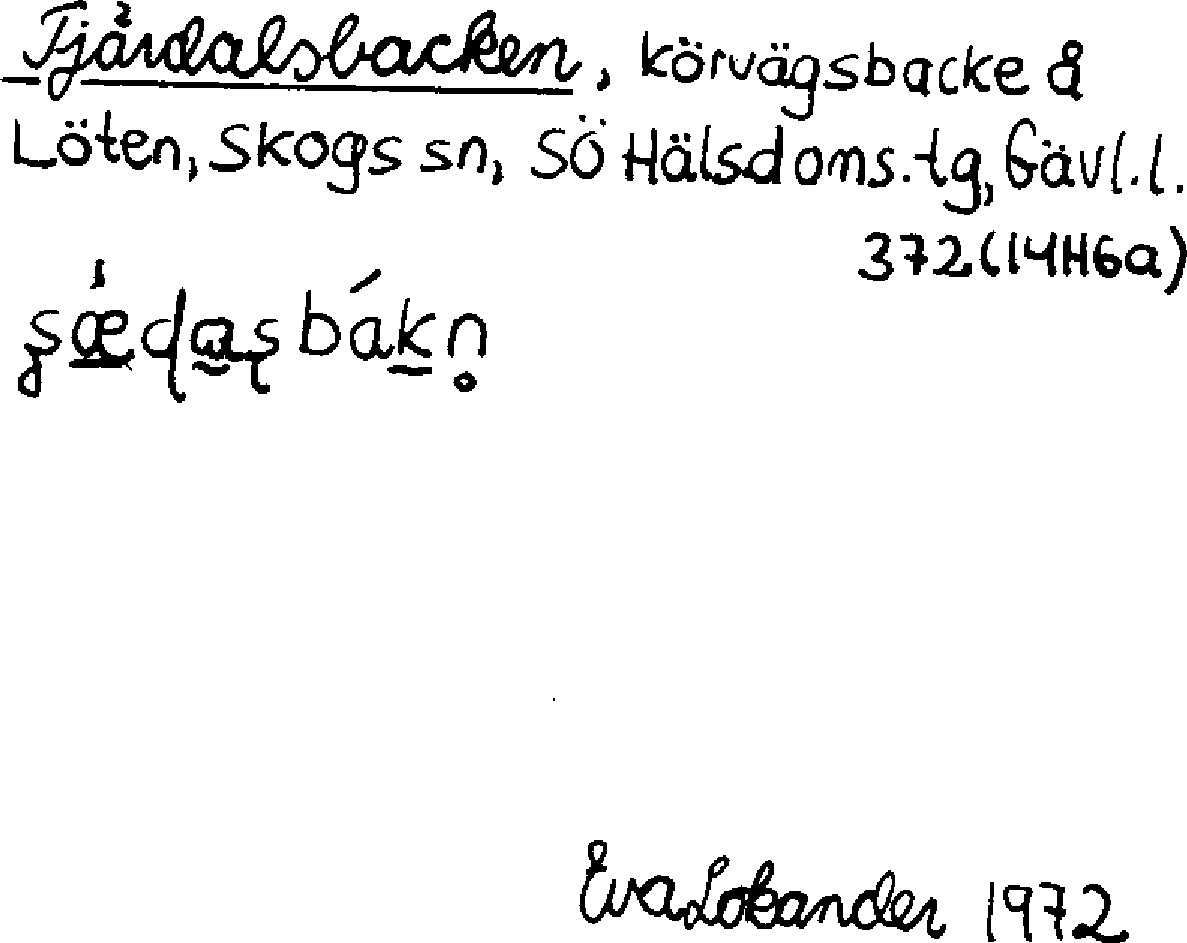 Tjärdalsbacken, körvägsbacke å
Löten, Skogs sn, SÖ Hälsdoms.tg, Gävl.l.
372 (14H6a)
Eva Lokander 1972